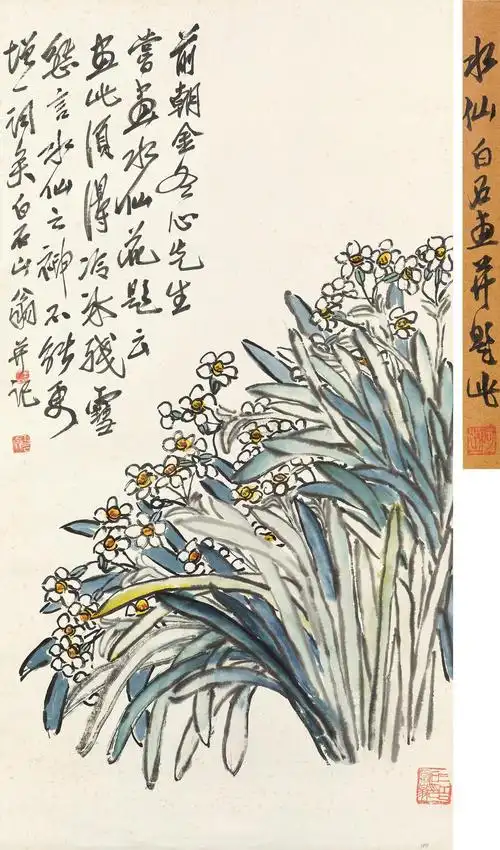 前朝金冬心先生
嘗畫水仙花題云
畫此須得冷冰殘雪
態言水仙之神不能更
增一詞矣白石山翁并記
水仙 白石畫并題此